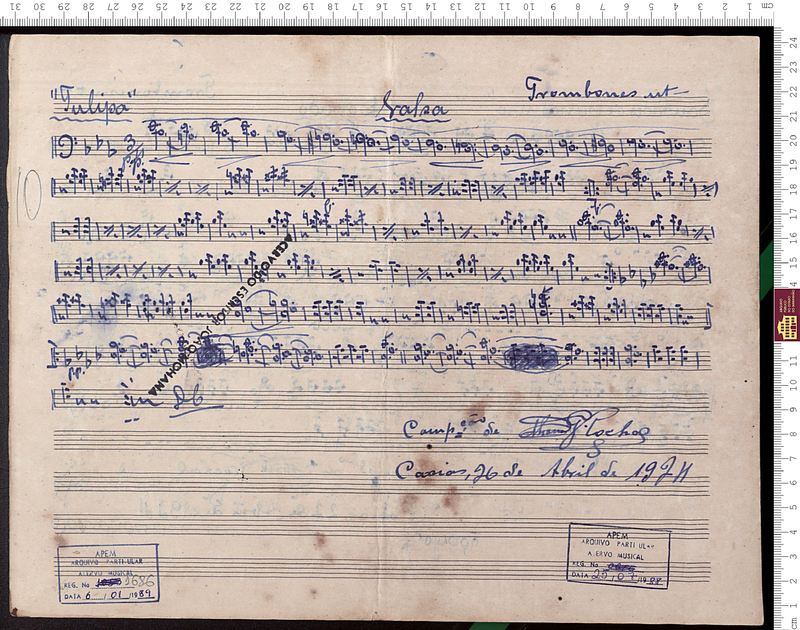 "Tulipa" Valsa Trombones ut
3/4
pp.
pp.
ACERVO DO LEITOR JOÃO MOHANA
DC
Comp.ção de Rocha
Caxias, 26 de Abril de 1974
APEM
ARQUIVO PARTICULAR
ACERVO MUSICAL
REG. No 1686
DATA 6 / 01 / 1989
APEM
ARQUIVO PARTICULAR
ACERVO MUSICAL
REG. No
DATA 25 / 07 / 1988